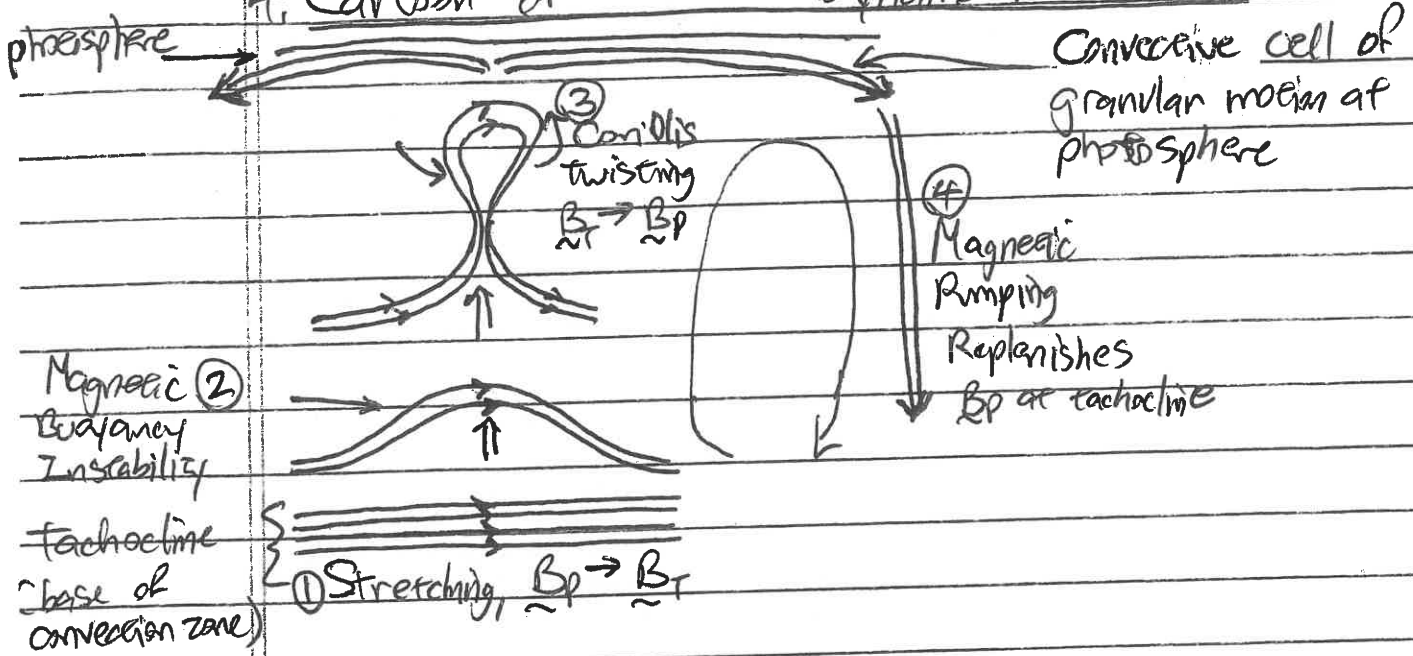 1. Cartoon of
photosphere
Convective cell of
granular motion at
photosphere
③
Coriolis
twisting
B_T → B_P
④
Magnetic
Pumping
Replenishes
B_P at tachocline
Magnetic ②
Buoyancy
Instability
Tachocline
(base of
convection zone)
① Stretching, B_P → B_T